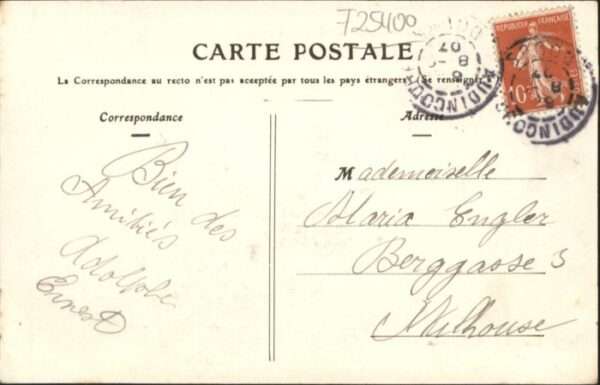 T25400
CARTE POSTALE
La Correspondance au recto n'est pas acceptée par tous les pays étrangers (Se renseigner à
Correspondance
Adresse
Bien des
Amitiés
Adolphe
Ernest
Mademoiselle
Maria Engler
Berggasse 3
Mulhouse
REPUBLIQUE FRANÇAISE
10
AUDINCOURT
8
07